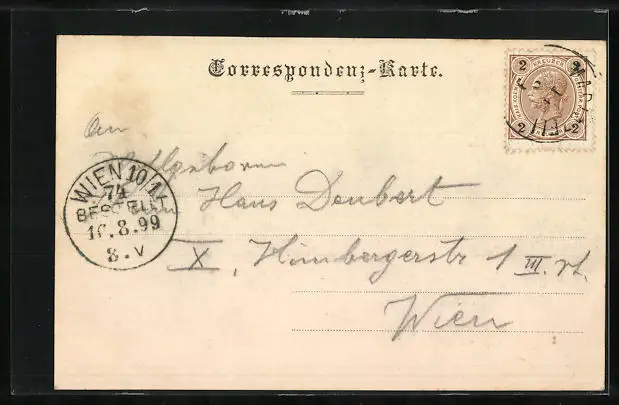 Correspondenz-Karte.
2 KREUZER 2
2 2
MARB
An
Wohlgeboren
WIEN 10/1
74
BESTELLT
16.8.99
8.V
Hans Deubert
X, Himbergerstr 1 III. st.
Wien